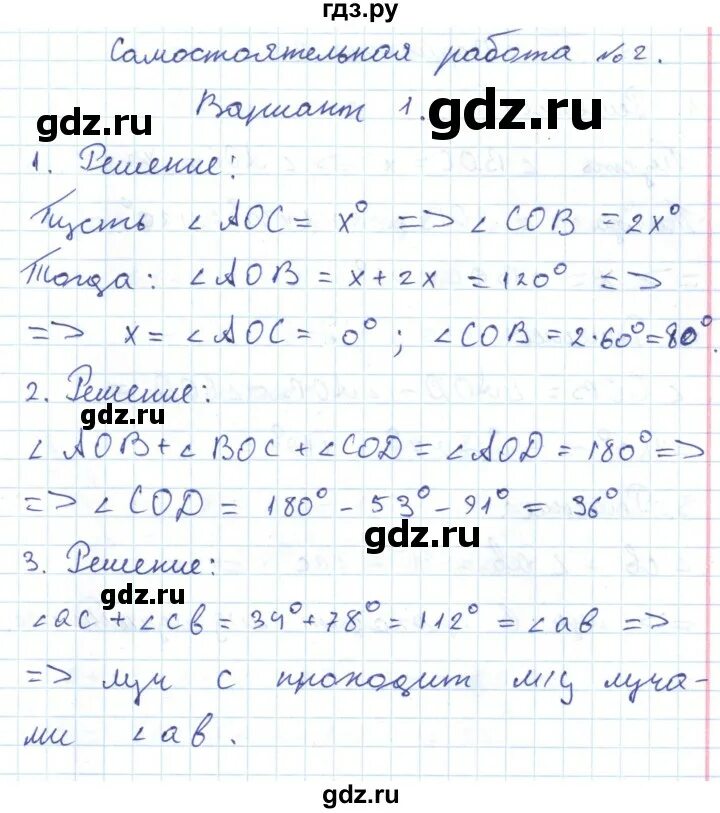 гдз.ру
Самостоятельная работа №2.
Вариант 1.
gdz.ru
gdz.ru
1. Решение:
Пусть ∠AOC = x° => ∠COB = 2x°
Тогда: ∠AOB = x + 2x = 120° <=>
=> x = ∠AOC = 0° ; ∠COB = 2·60° = 80°.
2. Решение:
gdz.ru
∠AOB + ∠BOC + ∠COD = ∠AOD = 180° =>
=> ∠COD = 180° - 53° - 91° = 36°
gdz.ru
3. Решение:
gdz.ru
∠ac + ∠cb = 34° + 78° = 112° = ∠ab =>
=> луч c проходит м/у луча-
ми ∠ab.
gdz.ru